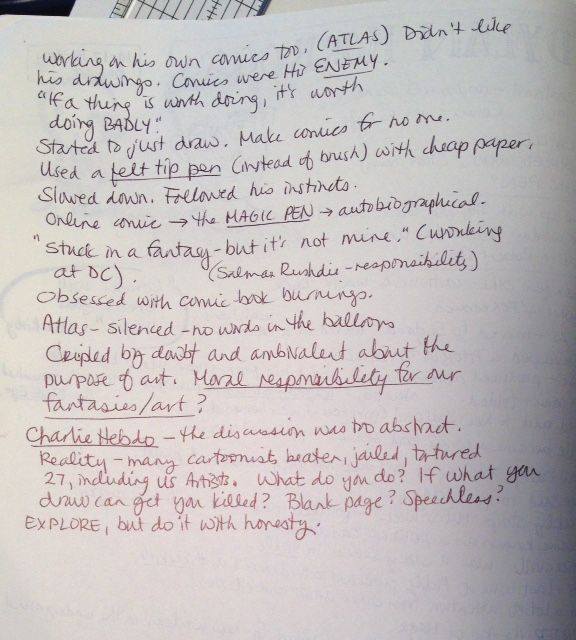 working on his own comics too. (ATLAS) Didn't like
his drawings. Comics were His ENEMY.
"If a thing is worth doing, it's worth
doing BADLY."
Started to just draw. Make comics for no one.
Used a felt tip pen (instead of brush) with cheap paper.
Slowed down. Followed his instincts.
Online comic → the MAGIC PEN → autobiographical.
"Stuck in a fantasy - but it's not mine." (working
at DC). (Salman Rushdie - responsibility)
Obsessed with comic book burnings.
Atlas - silenced - no words in the balloons
Cripled by doubt and ambivalent about the
purpose of art. Moral responsibility for our
fantasies/art?
Charlie Hebdo - the discussion was too abstract.
Reality - many cartoonists beaten, jailed, tortured
27, including US Artists. What do you do? If what you
draw can get you killed? Blank page? Speechless?
EXPLORE, but do it with honesty.